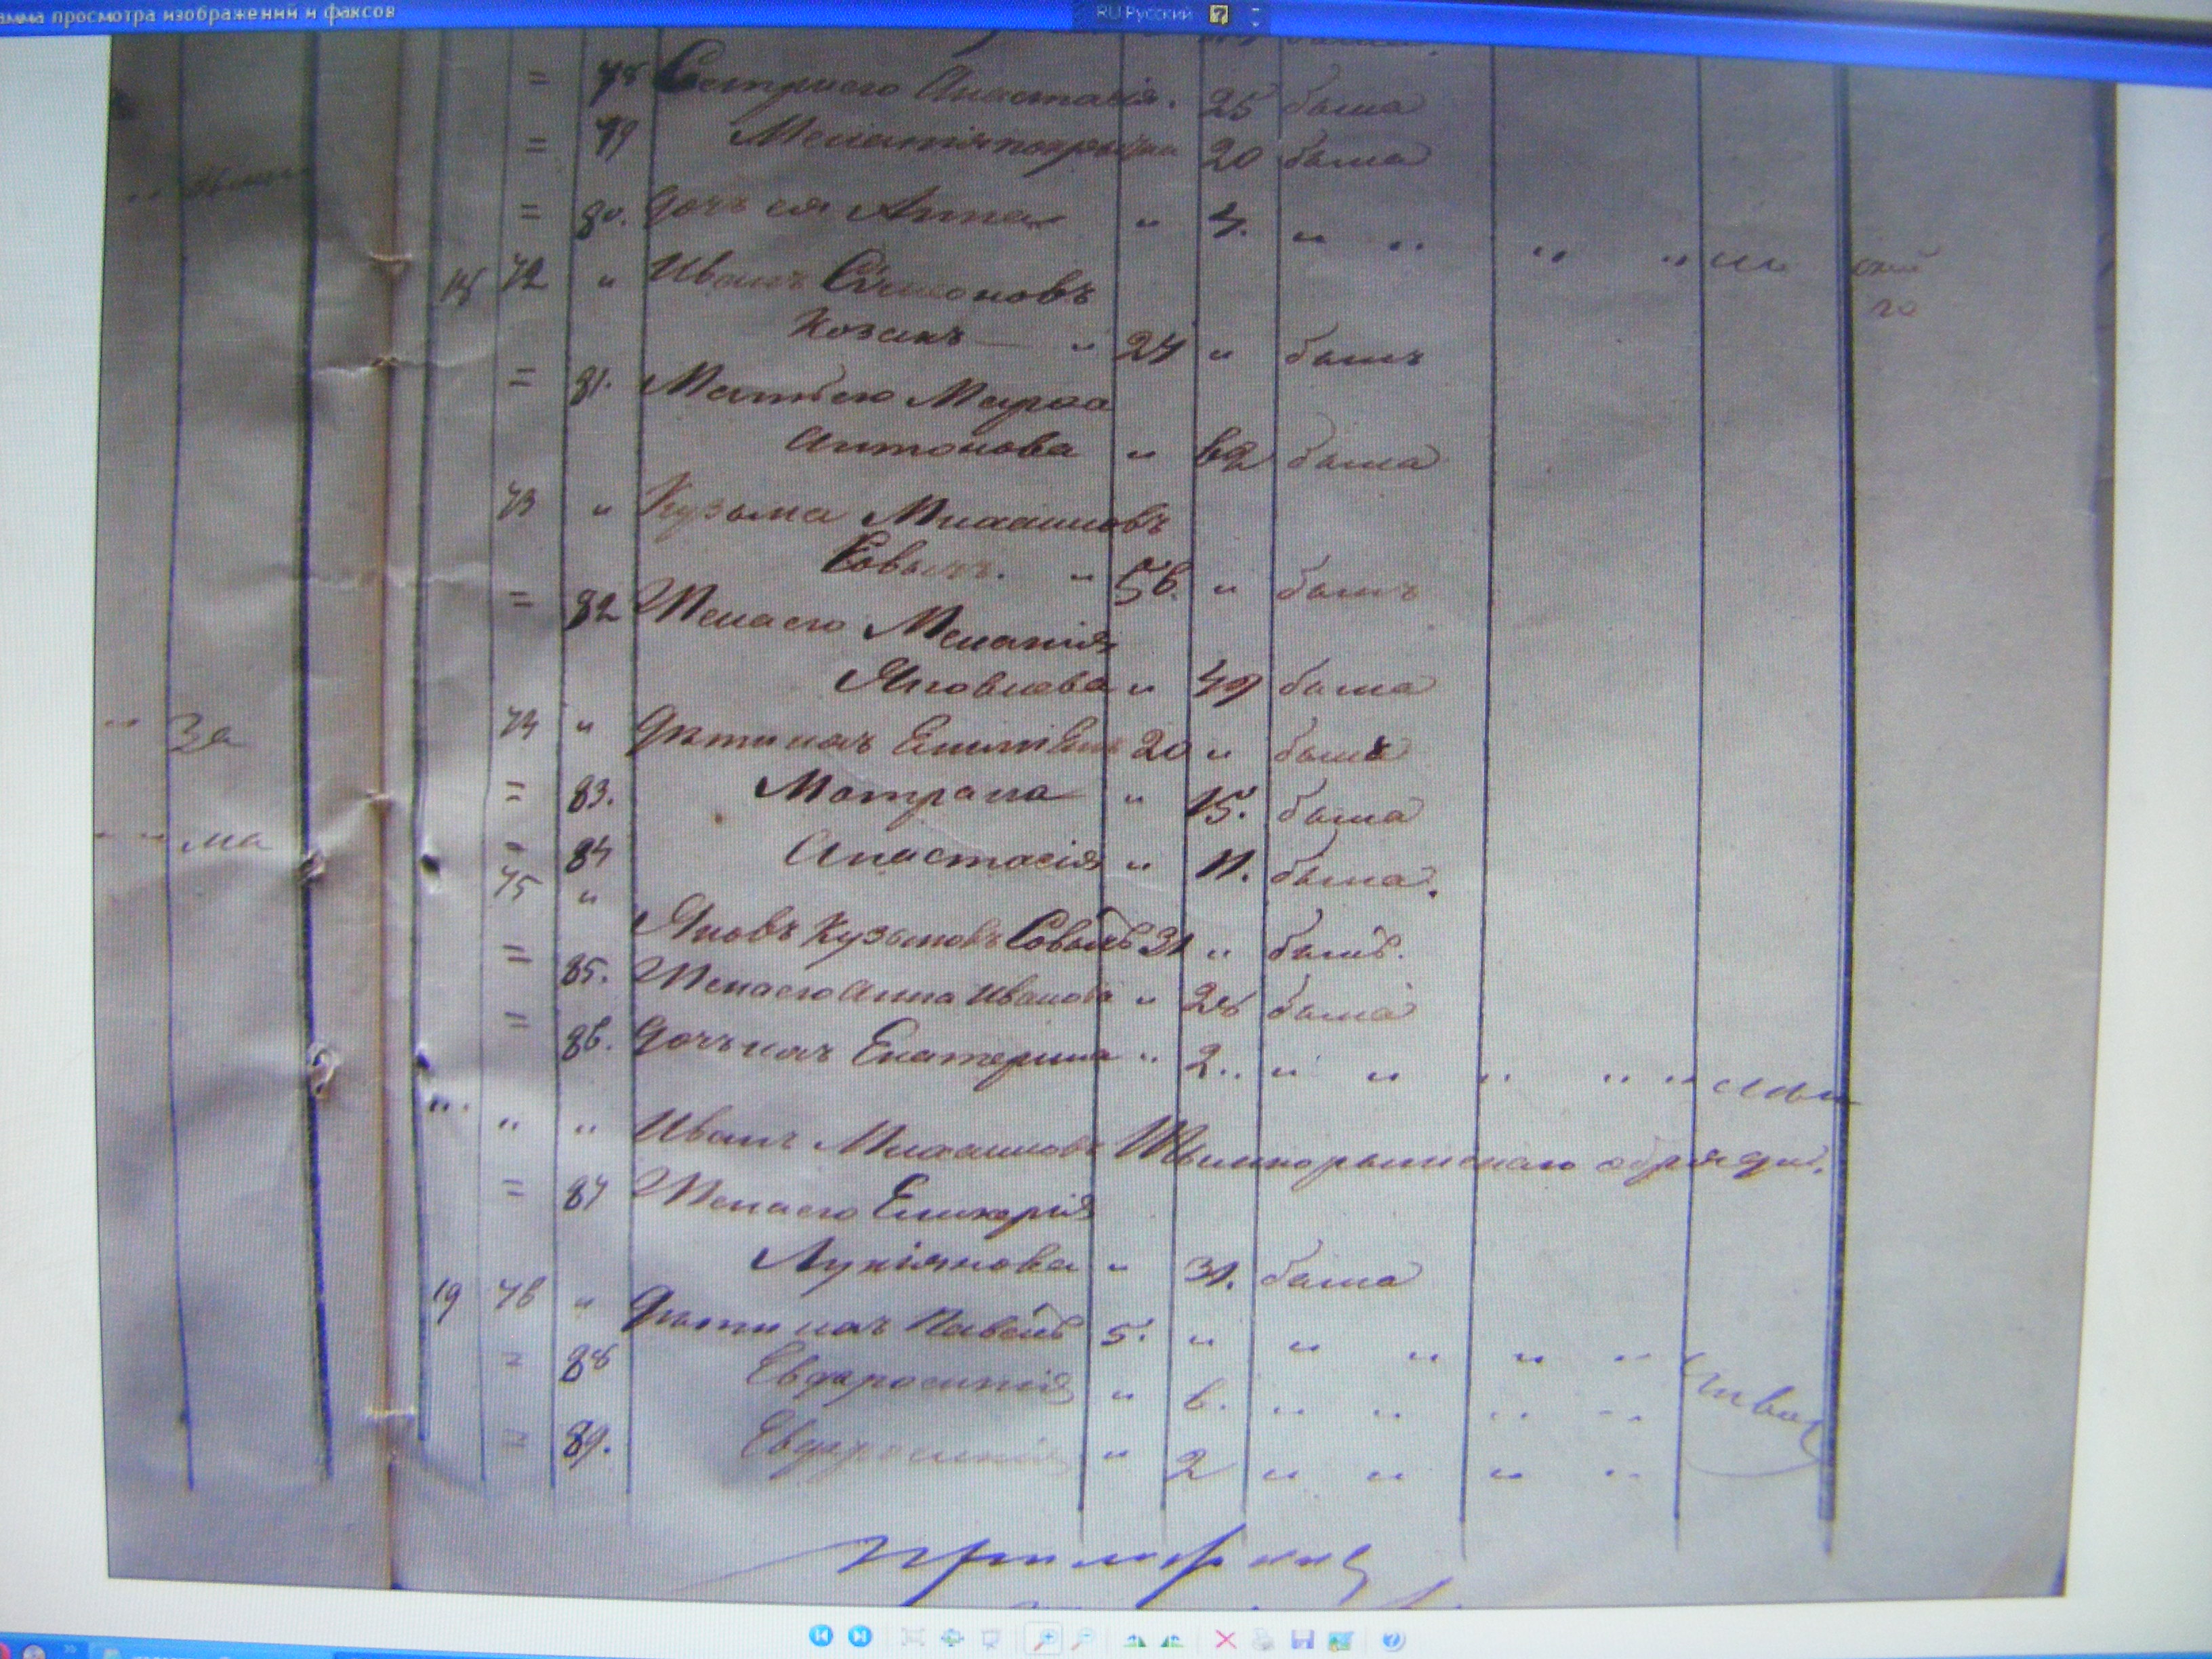 амма просмотра изображений и факсов RU Русский
= 78 Сестра его Анастасія. 25 была
= 79 Меланія покрытка 20 была
= 80. Дочь ея Анна " 4. " " " "
18 72 " Иванъ Симоновъ
Козакъ — " 24 " былъ
= 81. Мать его Марѳа
Антонова " 62 была
73 " Кузьма Михаиловъ
Коваль. " 56. " былъ
= 82 Жена его Меланія
Яковлева " 49 была
За
74 " Дѣти ихъ 20 " былъ
= 83. Матрона " 15. была
ма
= 84 Анастасія " 11. была.
75 "
Яковъ Кузьмовъ Коваль 31 " былъ.
= 85. Жена его Анна Иванова " 26 была
= 86. Дочь ихъ Екатерина " 2. " " " " "
" " " Иванъ Михаиловъ Римскаго обряда.
= 87 Жена его Гликерія
Лукіянова " 31. была
19 76 " Дѣти ихъ Павелъ 5. " " " " "
= 88 Евфросинія " 6. " " " "
= 89. Евфросинія " 2 " " " "